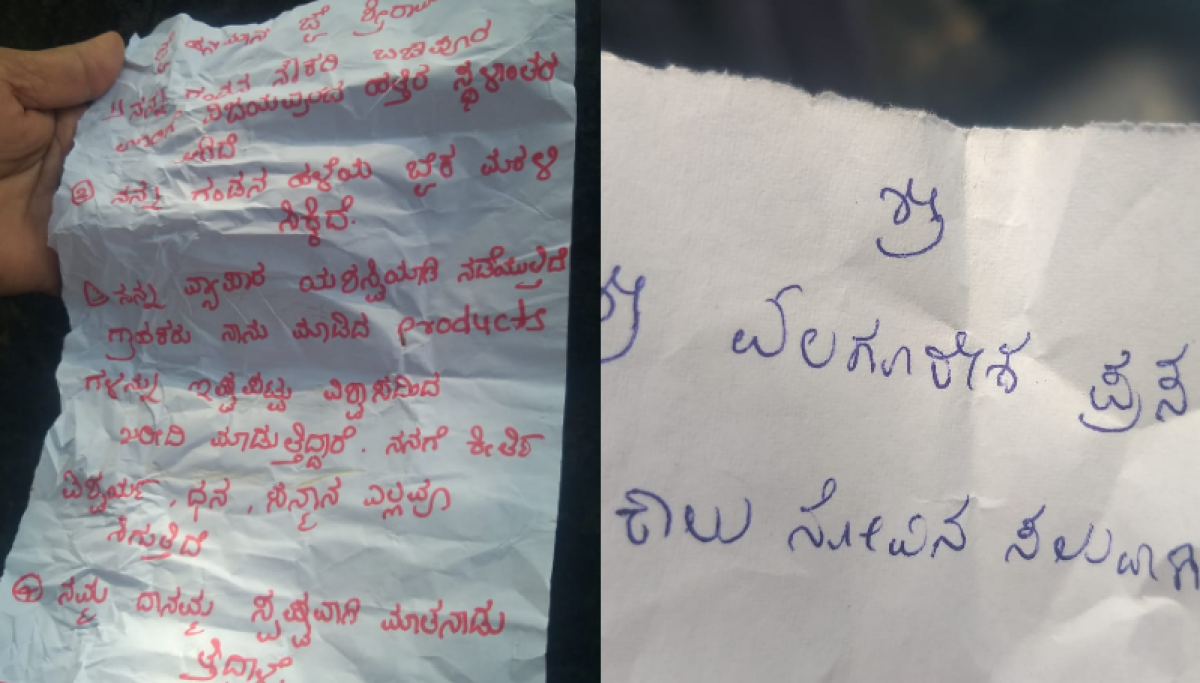 ಜೈ ಹನುಮಾನ ಜೈ ಶ್ರೀರಾಮ
ನನ್ನ ಗಂಡನ ನೌಕರಿ
ವಿಜಯಪುರದ ಹತ್ತಿರ ಸ್ಥಳಾಂತರ
ಆಗಿದೆ
② ನನ್ನ ಗಂಡನ ಹಳೆಯ ಬೈಕ ಮರಳಿ
ಸಿಕ್ಕಿದೆ.
ನನ್ನ ವ್ಯಾಪಾರ ಯಶಸ್ವಿಯಾಗಿ ನಡೆಯುತ್ತಿದೆ
ಗ್ರಾಹಕರು ನಾನು ಮಾಡಿದ products
ಗಳನ್ನು ಇಷ್ಟಪಟ್ಟು ವಿಶ್ವಾಸದಿಂದ
ಖರೀದಿ ಮಾಡುತ್ತಿದ್ದಾರೆ. ನನಗೆ ಕೀರ್ತಿ
ಐಶ್ವರ್ಯ, ಧನ, ಸನ್ಮಾನ ಎಲ್ಲವೂ
ಸಿಗುತ್ತಿದೆ
④ ನಮ್ಮ ದಾನಮ್ಮ ಸ್ಪಷ್ಟವಾಗಿ ಮಾತನಾಡು
ತ್ತಿದ್ದಾಳೆ
ಶ್ರೀ
ಶ್ರೀ ಯಲಗೂರೇಶ ಪ್ರಸ
ಕಾಲು ನೋವಿನ ಸಲುವಾಗಿ